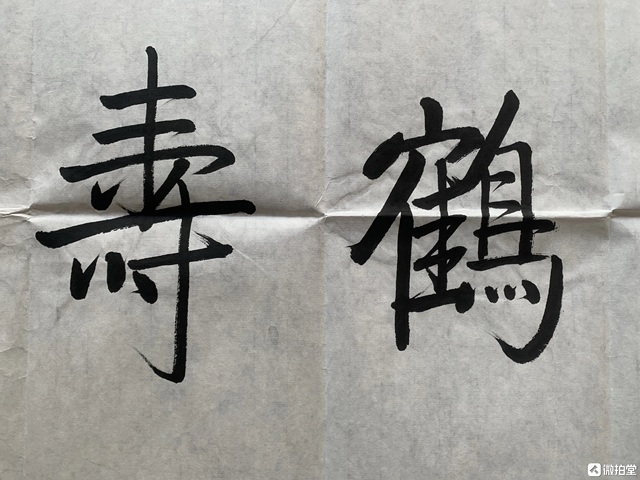 鶴壽
微拍堂